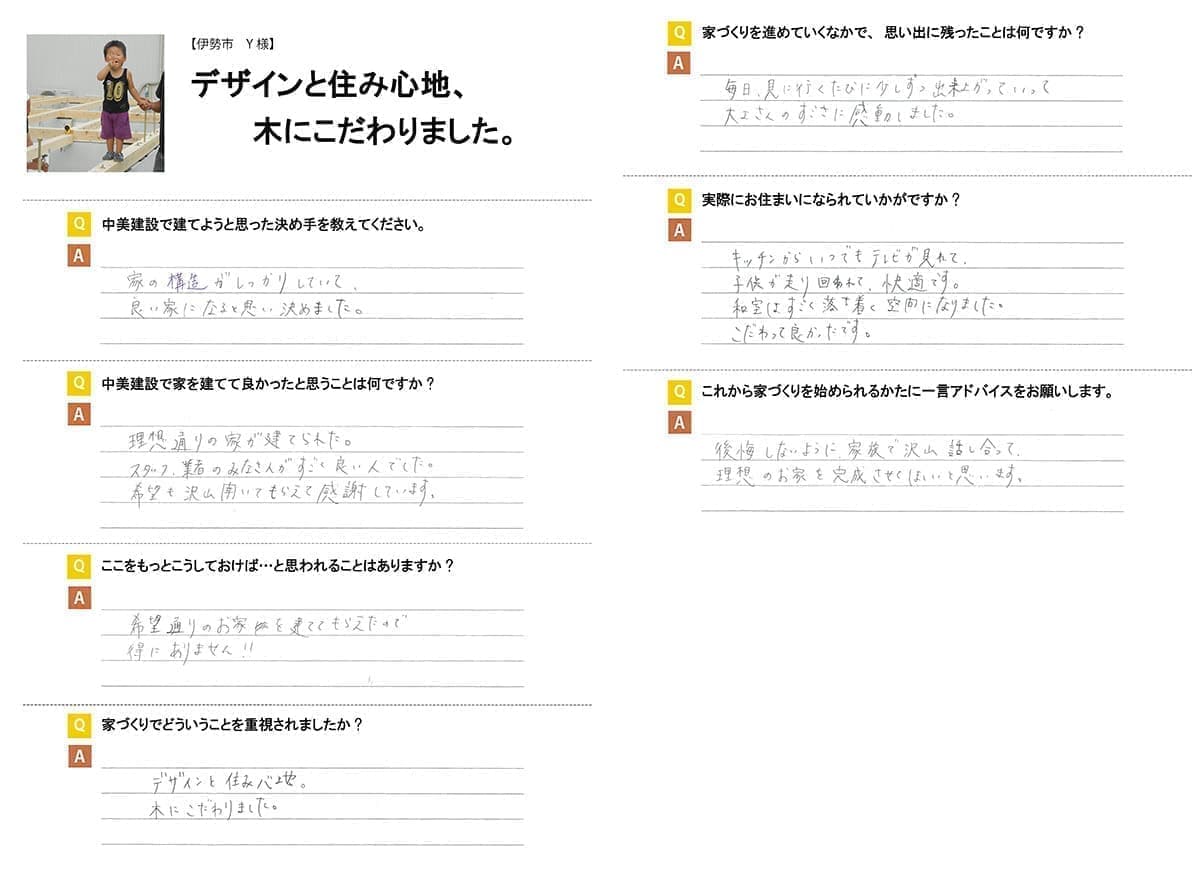 【伊勢市　Y様】
デザインと住み心地、
木にこだわりました。
Q 中美建設で建てようと思った決め手を教えてください。
A
家の構造がしっかりしていて、
良い家になると思い決めました。
Q 中美建設で家を建てて良かったと思うことは何ですか？
A
理想通りの家が建てられた。
スタッフ、業者のみなさんがすごく良い人でした。
希望も沢山聞いてもらえて感謝しています。
Q ここをもっとこうしておけば…と思われることはありますか？
A
希望通りのお家を建ててもらえたので
得にありません!!
Q 家づくりでどういうことを重視されましたか？
A
デザインと住み心地。
木にこだわりました。
Q 家づくりを進めていくなかで、思い出に残ったことは何ですか？
A
毎日、見に行くたびに少しずつ出来上がっていって
大工さんのすごさに感動しました。
Q 実際にお住まいになられていかがですか？
A
キッチンからいつでもテレビが見れて、
子供が走り回われて、快適です。
和室はすごく落ち着く空間になりました。
こだわって良かったです。
Q これから家づくりを始められるかたに一言アドバイスをお願いします。
A
後悔しないように、家族で沢山話し合って、
理想のお家を完成させてほしいと思います。